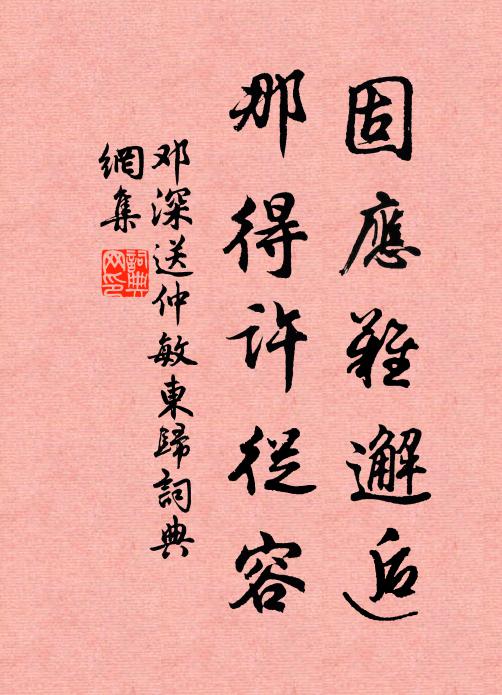 固應難邂逅
那得許從容
邓深送仲敏東歸詞典
網集
詞典
网印